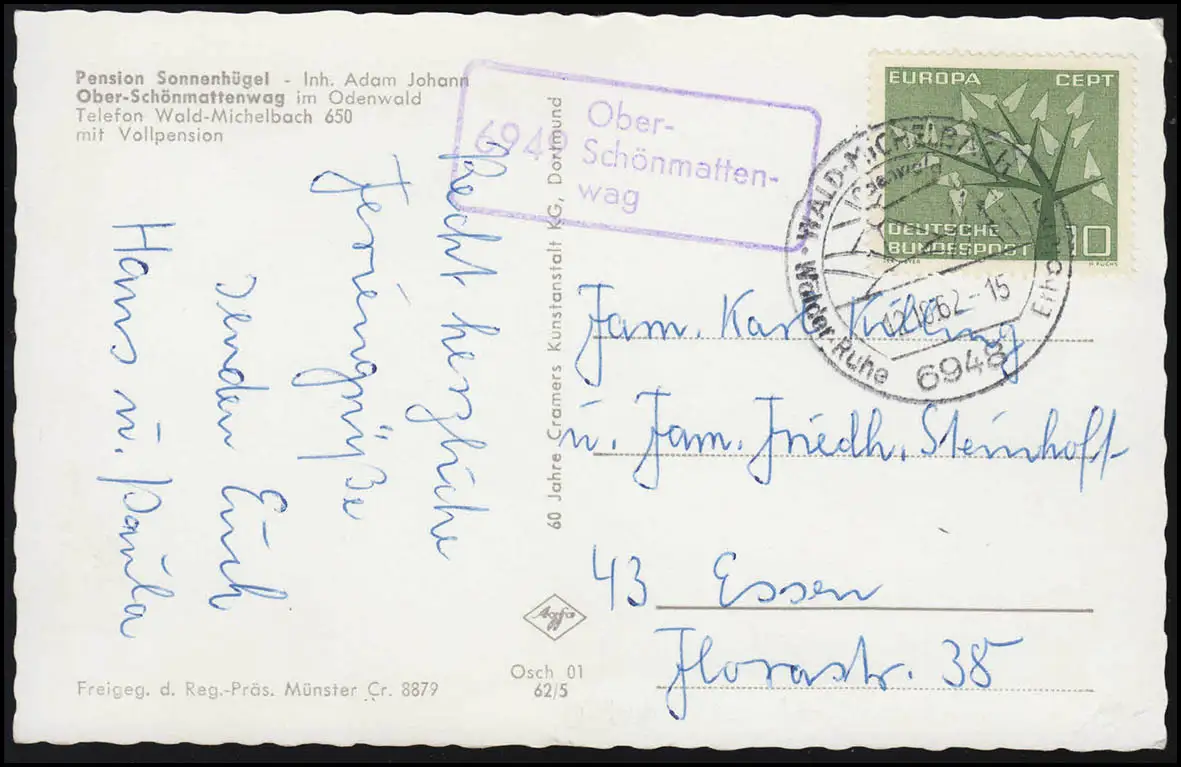 Pension Sonnenhügel - Inh. Adam Johann
Ober-Schönmattenwag im Odenwald
Telefon Wald-Michelbach 650
mit Vollpension
6949 Ober-
Schönmatten-
wag
EUROPA CEPT
DEUTSCHE
BUNDESPOST 10
H. FUCHS
WALD-MICHELBACH
(Odenwald)
-15
Walder-Ruhe
6948
Recht herzliche
Feriengrüße
senden Euch
Hans u. Paula
60 Jahre Cramers Kunstanstalt KG, Dortmund
Fam. Karl Külling
u. Fam. Friedh. Steinhoff
43 Essen
Florastr. 38
Agfa
Osch 01
62/5
Freigeg. d. Reg.-Präs. Münster Cr. 8879